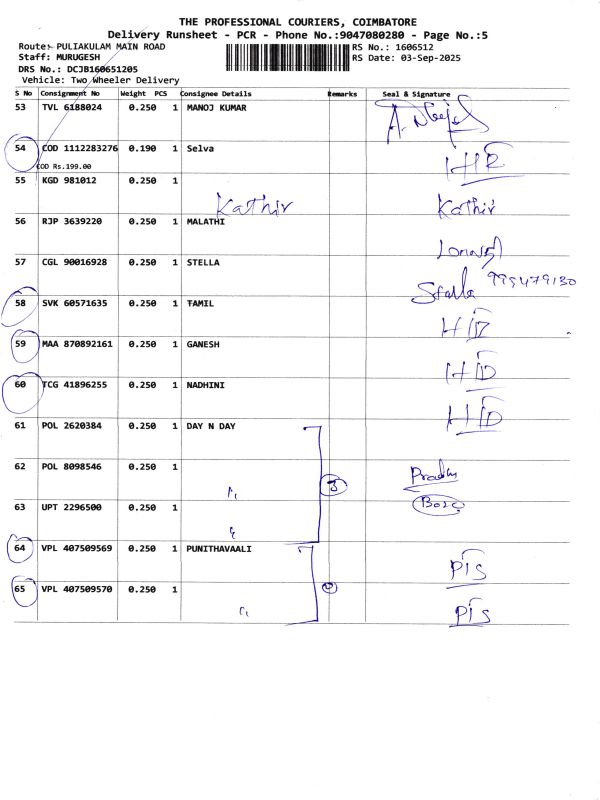 THE PROFESSIONAL COURIERS, COIMBATORE
Delivery Runsheet - PCR - Phone No.:9047080280 - Page No.:5
Route: PULIAKULAM MAIN ROAD
RS No.: 1606512
Staff: MURUGESH
RS Date: 03-Sep-2025
DRS No.: DCJB160651205
Vehicle: Two Wheeler Delivery
S No Consignment No Weight PCS Consignee Details Remarks Seal & Signature
53 TVL 6188024 0.250 1 MANOJ KUMAR
54 COD 1112283276 0.190 1 Selva
COD Rs.199.00
55 KGD 981012 0.250 1
Kathir Kathir
56 RJP 3639220 0.250 1 MALATHI
57 CGL 90016928 0.250 1 STELLA
Stella
58 SVK 60571635 0.250 1 TAMIL
59 MAA 870892161 0.250 1 GANESH
60 TCG 41896255 0.250 1 NADHINI
61 POL 2620384 0.250 1 DAY N DAY
62 POL 8098546 0.250 1
63 UPT 2296500 0.250 1
64 VPL 407509569 0.250 1 PUNITHAVAALI
65 VPL 407509570 0.250 1